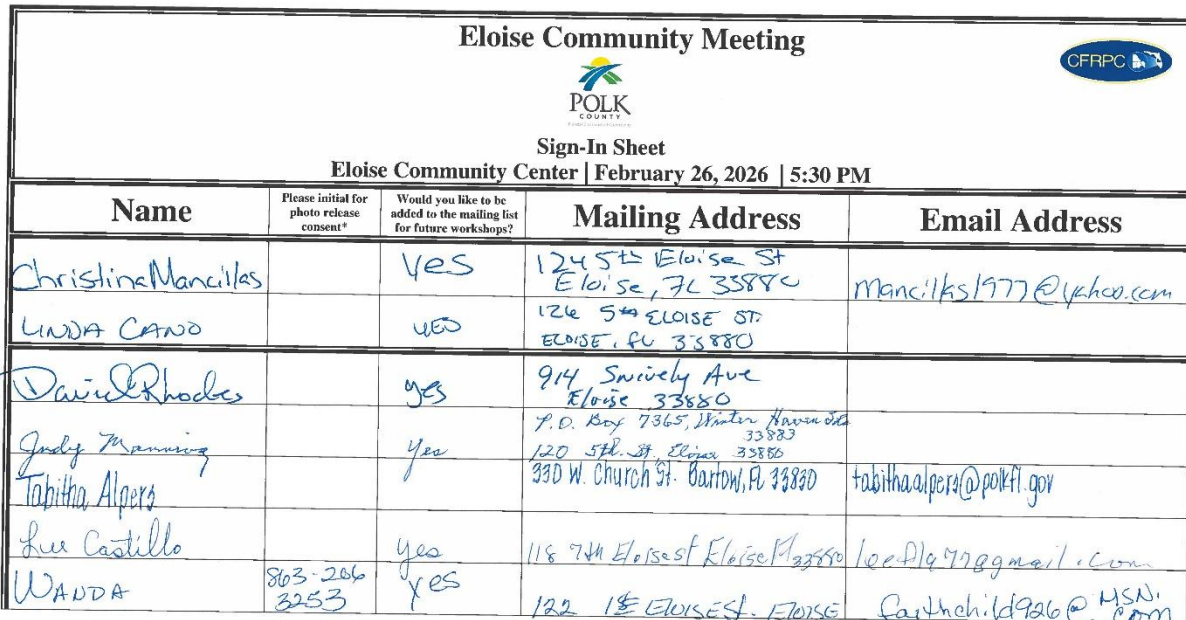 Eloise Community Meeting
CFRPC
POLK
COUNTY
Sign-In Sheet
Eloise Community Center | February 26, 2026 | 5:30 PM
Name
Please initial for
photo release
consent*
Would you like to be
added to the mailing list
for future workshops?
Mailing Address
Email Address
Christina Mancillas
yes
124 5th Eloise St
Eloise, FL 33880
mancillas1977@yahoo.com
LINDA CANO
YES
126 5th ELOISE ST.
ELOISE, FL 33880
David Rhodes
yes
914 Snively Ave
Eloise 33880
Judy Manning
Yes
P.O. Box 7365, Winter Haven
33883
120 5th St, Eloise 33880
Tabitha Alpers
330 W. Church St. Bartow, FL 33830
tabithaalpers@polkfl.gov
Castillo
yes
118 7th Eloise st Eloise Fl 33880
WANDA
863-206
3253
yes
122 1st ELOISE St. ELOISE
faithchild926@MSN.
COM